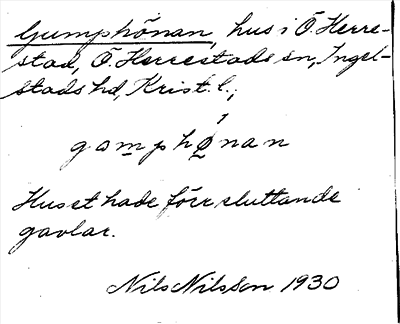 Gumphönan, hus i Ö. Herre-
stad, Ö. Herrestads sn, Ingel-
stads hd, Krist. l.;
gomphønan
Huset hade förr sluttande
gavlar.
Nils Nilsson 1930